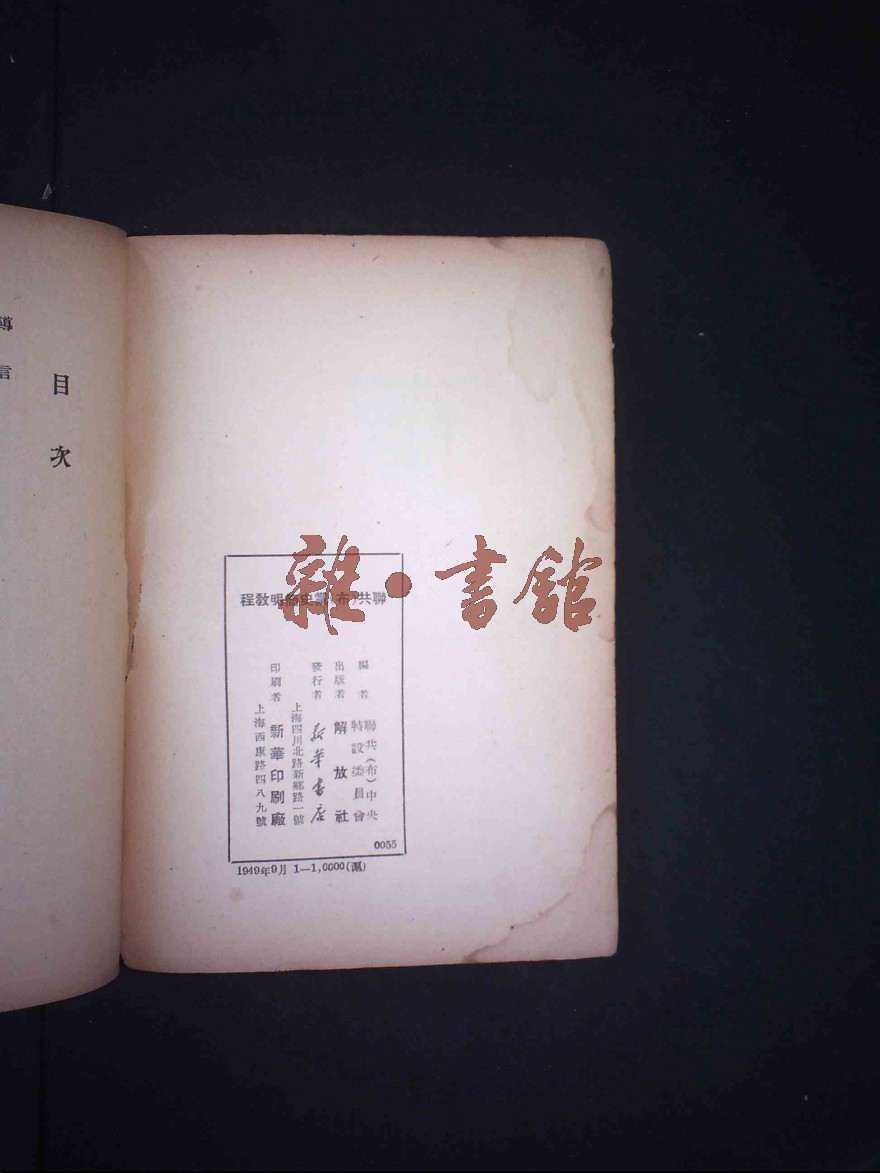 雜·書館
聯共(布)黨史簡明教程
編者 聯共(布)中央
特設委員會
出版者 解放社
發行者 新華書店
上海四川北路新鄉路一號
印刷者 新華印刷廠
上海西康路四八九號
0055
1949年9月 1—1,0000(滬)
目次
導言